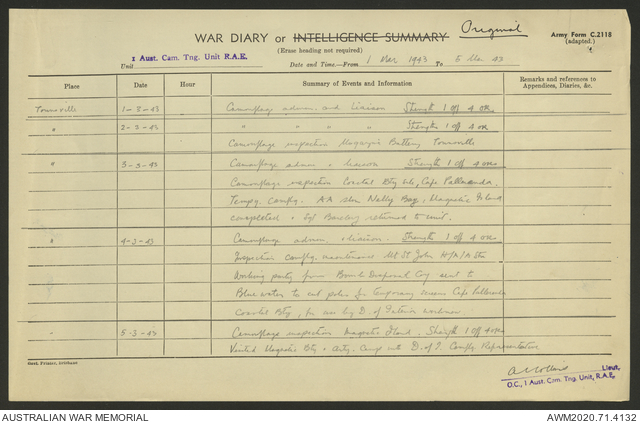 WAR DIARY or INTELLIGENCE SUMMARY
Original
Army Form C.2118
(adapted.)
(Erase heading not required)
Unit 1 Aust. Cam. Tng. Unit R.A.E.
Date and Time.—From 1 Mar 1943 To 5 Mar 43
Place Date Hour Summary of Events and Information Remarks and references to Appendices, Diaries, &c.
Townsville 1-3-43 Camouflage admin. and liaison Strength 1 off 4 ORs
" 2-3-43 " " " " Strength 1 off 4 ORs
Camouflage inspection Magazine Battery Townsville
" 3-3-43 Camouflage admin & liaison Strength 1 off 4 ORs
Camouflage inspection Coastal Bty site, Cape Pallarenda.
Tempy. Camflg. AA Nelly Bay, Magnetic Island
completed & returned to unit.
" 4-3-43 Camouflage admin. & liaison. Strength 1 off 4 ORs
Inspection camflg. maintenance Mt St John H/A/A Stn
Working party from Bomb Disposal Coy sent to
Bluewater to cut poles for temporary screens Cape Pallarenda
Coastal Bty, for use by D. of Interior workmen
" 5-3-43 Camouflage inspection Magnetic Island. Strength 1 off 4 ORs
Visited Magnetic Bty & Arty. Camp with D. of I. Camflg Representative
Govt. Printer, Brisbane
Lieut.
O.C., 1 Aust. Cam. Tng. Unit, R.A.E.
AUSTRALIAN WAR MEMORIAL AWM2020.71.4132